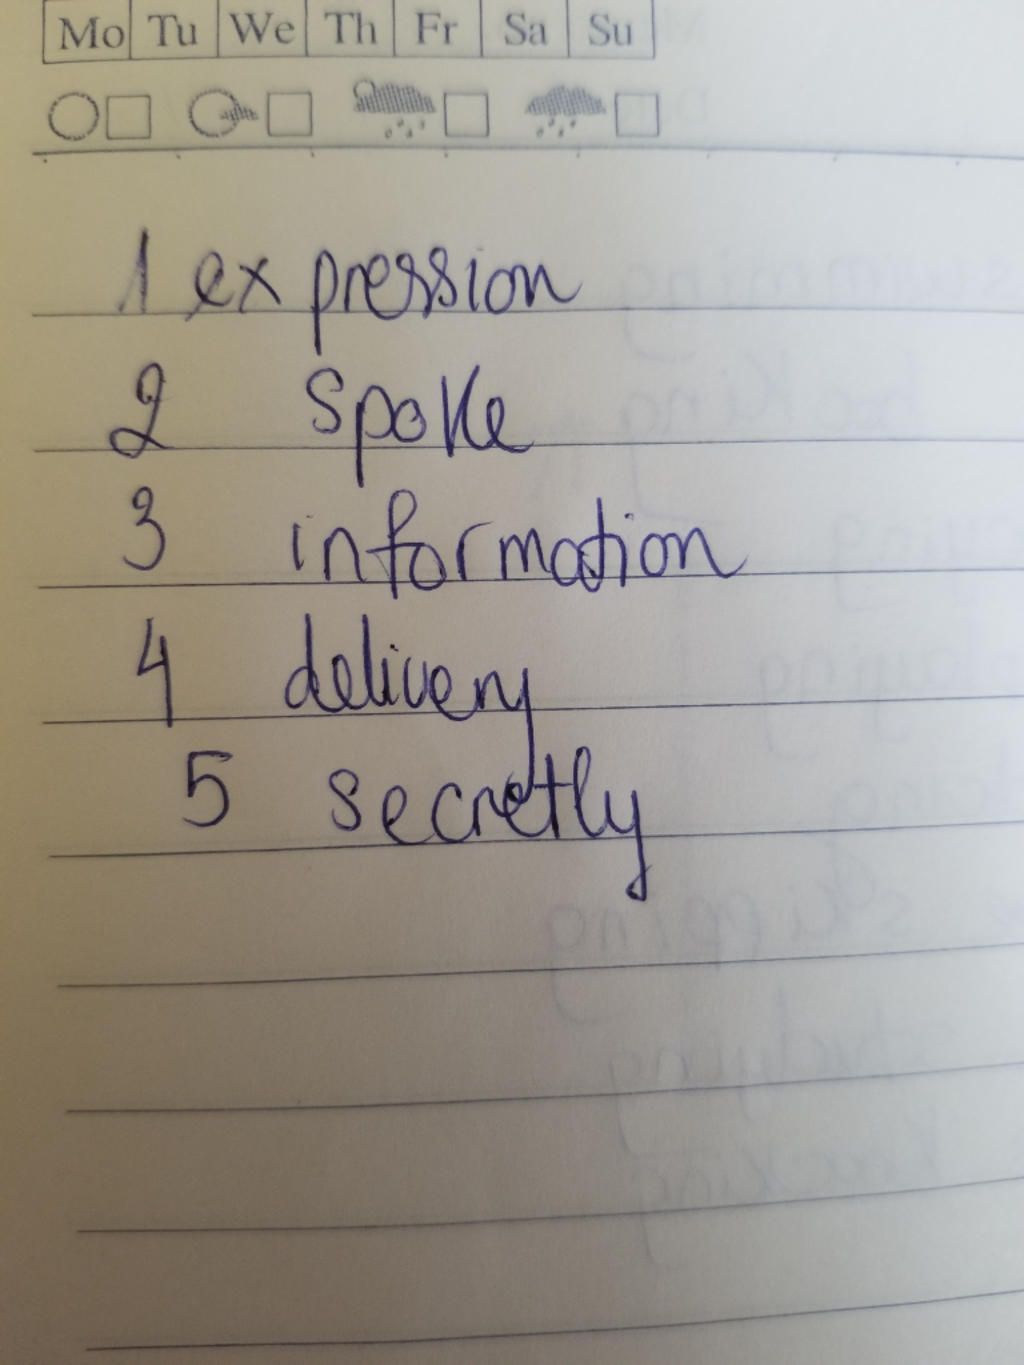 Mo Tu We Th Fr Sa Su
1 expression
2 spoke
3 information
4 delivery
5 secretly